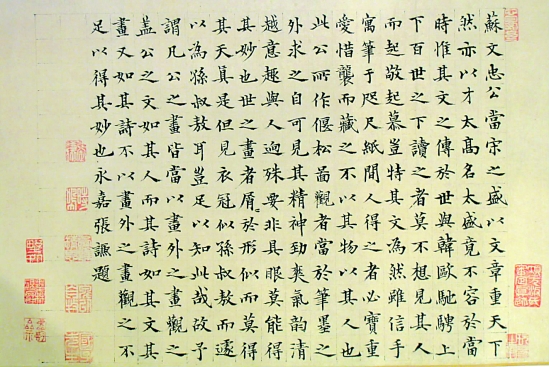 蘇文忠公當宋之盛以文章重天下
然亦以才太高名太盛竟不容於當
時惟其文之傳於世與韓歐馳騁上
下百世之下讀之者莫不想見其人
而起敬起慕豈特其文為然雖信手
寓筆于咫尺紙間人得之者必寶重
愛惜襲而藏之不以其物以其人也
此公所作偃松啚觀者當於筆墨之
外求之自可見其精神勁爽氣韵清
越意趣與人逈殊要非具眼莫能得
其妙也世之畫者屑於形似而莫得
其天真是但見衣冠似孫叔敖而遽
以為孫叔敖耳豈足以知此哉故予
謂凡公之畫皆當以畫外之畫觀之
盖公之文如其人而其詩如其文其
畫又如其詩不以畫外之畫觀之不
足以得其妙也永嘉張謙題